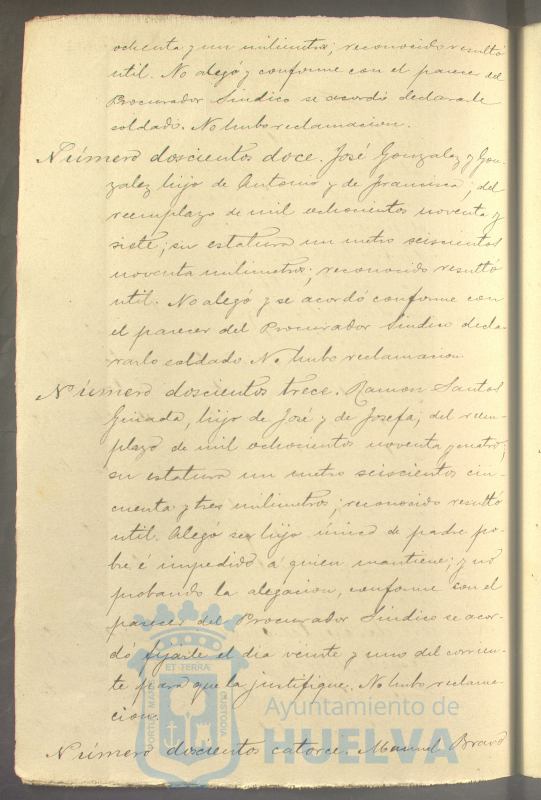 ochenta y un milimetros; reconocido resultó
util. No alegó y conforme con el parecer del
Procurador Sindico se acordó declararle
soldado. No hubo reclamacion.
Número doscientos doce. José Gonzalez y Gon-
zalez hijo de Antonio y de Francisca, del
reemplazo de mil ochocientos noventa y
siete; su estatura un metro seiscientos
noventa milimetros; reconocido resultó
util. No alegó y se acordó conforme con
el parecer del Procurador Sindico decla-
rarlo soldado. No hubo reclamacion.
Número doscientos trece. Ramon Santos
hijo de José y de Josefa, del reem-
plazo de mil ochocientos noventa y cuatro;
su estatura un metro seiscientos cin-
cuenta y tres milimetros; reconocido resultó
util. Alegó ser hijo único de padre po-
bre é impedido á quien mantiene; y no
probando la alegacion, conforme con el
parecer del Procurador Sindico se acor-
dó fijarle el dia veinte y uno del corrien-
te para que la justifique. No hubo reclama-
cion.
Número doscientos catorce. Manuel Bravo
PORTUS MARIS ET TERRAE CUSTODIA
Ayuntamiento de
HUELVA